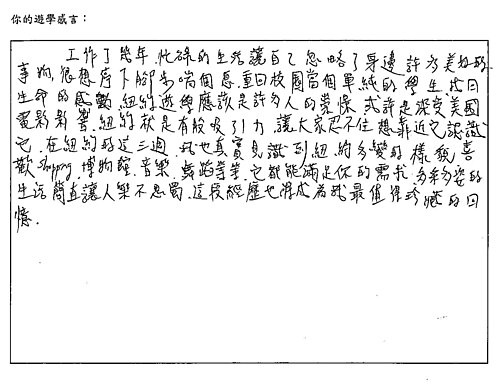 你的遊學感言：
工作了幾年，忙碌的生活讓自己忽略了身邊許多美好的
事物，很想停下腳步喘個息，重回校園當個單純的學生找回
生命的感動。紐約遊學應該是許多人的夢想，或許是深受美國
電影影響，紐約就是有股吸引力，讓大家忍不住想靠近它，認識
它，在紐約的這三週，我也真實見識到紐約多變的樣貌，喜
歡Shopping，博物館，音樂，舞蹈等等，它都能滿足你的需求，多彩多姿的
生活簡直讓人樂不思蜀，這段經歷也將成為我最值得珍藏的回
憶。